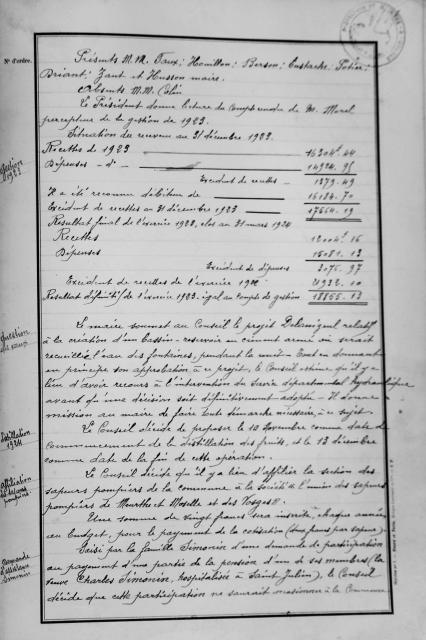 N° d'ordre.
Présents M.M. Faux; Houillon; Berson; Eustache; Potier;
Briant; Zant et Husson maire.
Absents M.M. Colin
Le Président donne lecture du compte rendu de M. Morel
percepteur de la gestion de 1923.
Situation du revenu au 31 décembre 1923.
Gestion
1923
Recettes de 1923 16304f.44
Dépenses - d° - 14924.95
Excédent de recettes 1379.49
Il a été reconnu débiteur de 16184.70
Excédent de recettes au 31 décembre 1923 17564.19
Résultat final de l'exercice 1923, clos au 31 mars 1924
Recettes 12004f.16
Dépenses 15081.13
Excédent de dépenses 3076.97
Excédent de recettes de l'exercice 1922 21932.10
Résultat définitif de l'exercice 1923 égal au compte de gestion 18855.13
Le maire soumet au Conseil le projet relatif
à la création d'un bassin-réservoir en ciment armé où serait
recueillie l'eau des fontaines, pendant la nuit - Tout en donnant
en principe son approbation à ce projet, le Conseil estime qu'il y a
lieu d'avoir recours à l'intervention du Service départemental hydraulique
avant qu'une décision soit définitivement adoptée - Il donne
mission au maire de faire toute démarche nécessaire à ce sujet.
Distillation
1924
Le Conseil décide de proposer le 10 Novembre comme date de
commencement de la distillation des fruits, et le 13 décembre
comme date de la fin de cette opération.
Affiliation
pompiers
Le Conseil décide qu'il y a lieu d'affilier la section des
sapeurs pompiers de la commune à la société de l'union des sapeurs
pompiers de Meurthe et Moselle et des Vosges.
Une somme de vingt francs sera inscrite, chaque année
au budget, pour le payement de la cotisation (deux francs par sapeur).
Demande
Simonin
Saisi par la famille Simonin d'une demande de participation
au payement d'une partie de la pension d'un de ses membres (la
veuve Charles Simonin, hospitalisée à Saint Julien), le Conseil
décide que cette participation ne saurait à la Commune